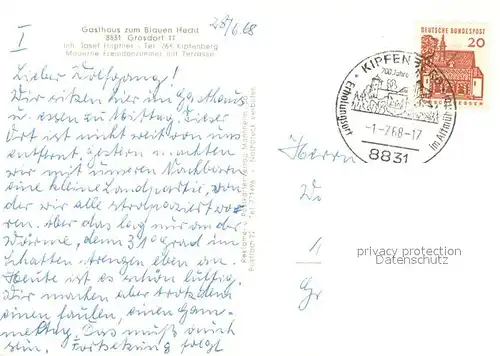 I
28/6.68
Gasthaus zum Blauen Hecht
8831 Grösdorf 11
Inh. Josef Hopfner - Tel. 264 Kipfenberg
Moderne Fremdenzimmer mit Terrasse
Lieber Wolfgang!
Wir sitzen hier im Gasthaus
u. essen zu Mittag. Dieser
Ort ist nicht weit von uns
entfernt. Gestern machten
wir mit unseren Nachbarn
eine kleine Landpartie, von
der wir alle strapaziert wa-
ren. Aber das lag nur an der
Wärme, denn 31 Grad im
Schatten strengen eben an.
Heute ist es schön luftig.
Wir machen aber trotzdem
einen faulen, einen Gam-
meltag. Das muß auch
sein. Fortsetzung folgt
Nachdruck verboten
DEUTSCHE BUNDESPOST
20
KIPFENBERG
700 Jahre
Erholungsort
im Altmühltal
-1.-7.68-17
8831
Herrn
privacy protection
Datenschutz